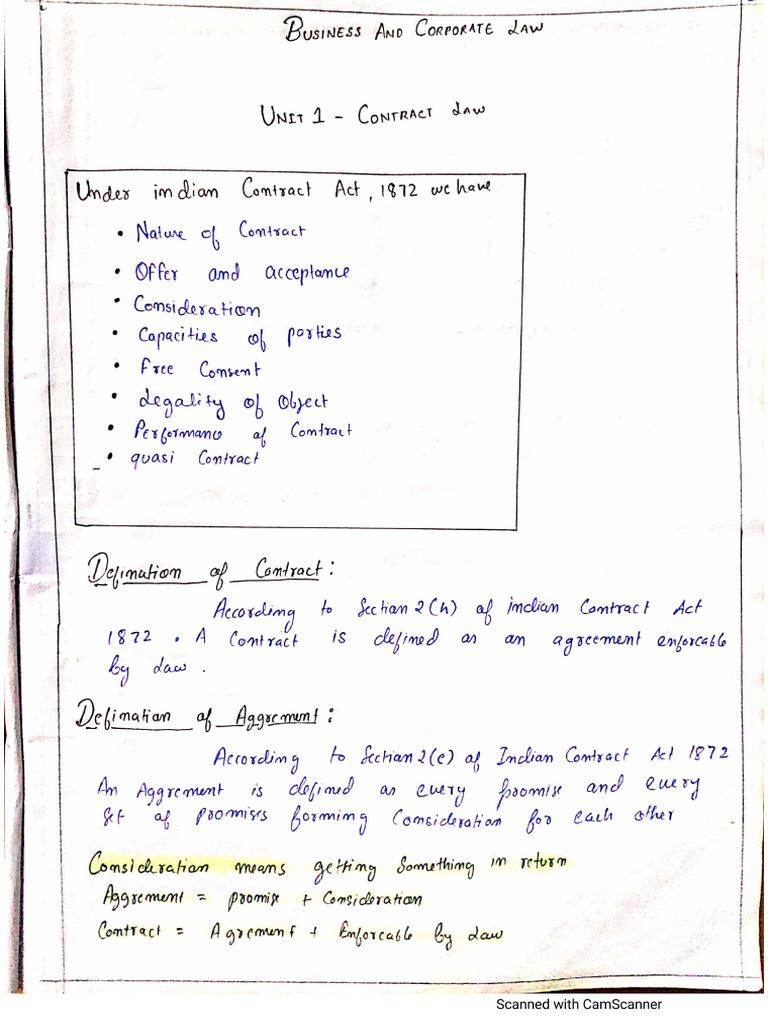 Business And Corporate Law
Unit 1 - Contract Law
Under indian Contract Act, 1872 we have
• Nature of Contract
• Offer and acceptance
• Consideration
• Capacities of parties
• Free Consent
• Legality of Object
• Performance of Contract
• quasi Contract
Defination of Contract:
According to Section 2(h) of indian Contract Act
1872 . A Contract is defined as an agreement enforcable
by Law .
Defination of Aggrement:
According to Section 2(e) of Indian Contract Act 1872
An Aggrement is defined as every promise and every
set of promises forming Consideration for each other
Consideration means getting Something in return
Aggrement = promise + Consideration
Contract = Agrement + Enforcable by Law
Scanned with CamScanner